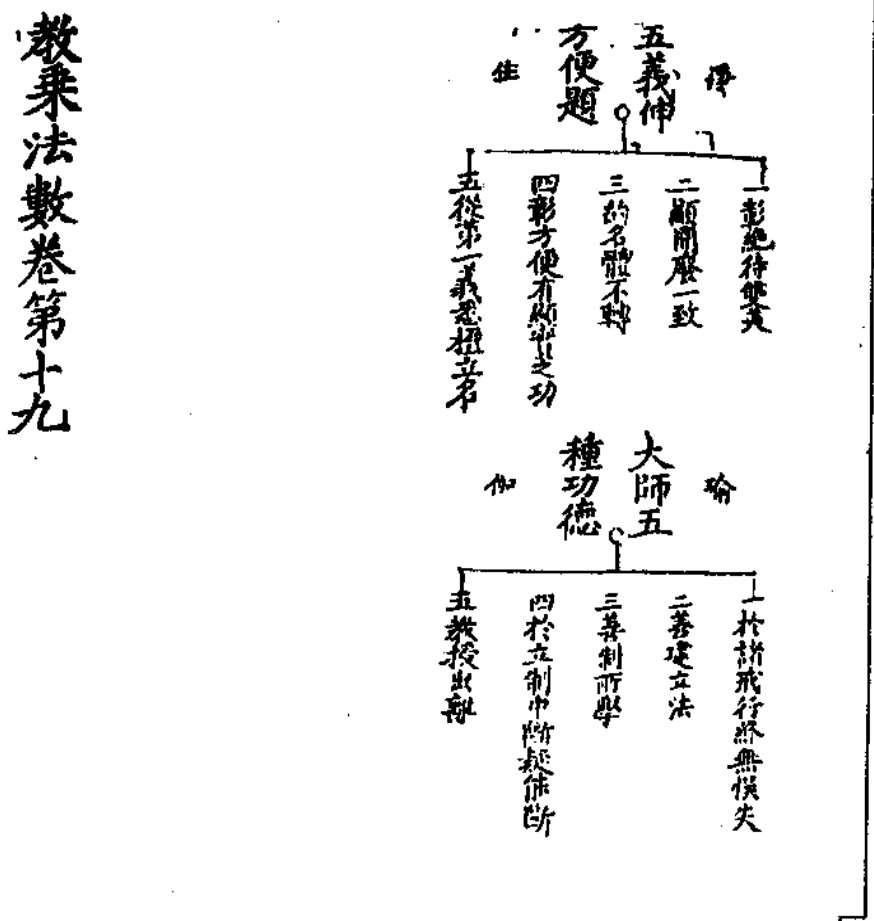 五義伸
方便題
住
一彰絕待雙美
二顯開廢一致
三的名體不轉
四彰方便有顯實之功
五從第一義悉檀立名
瑜
大師五
種功德
伽
一於諸戒行終無悞失
二善建立法
三善制所學
四於立制中斷疑能斷
五教授出離
教乘法數卷第十九